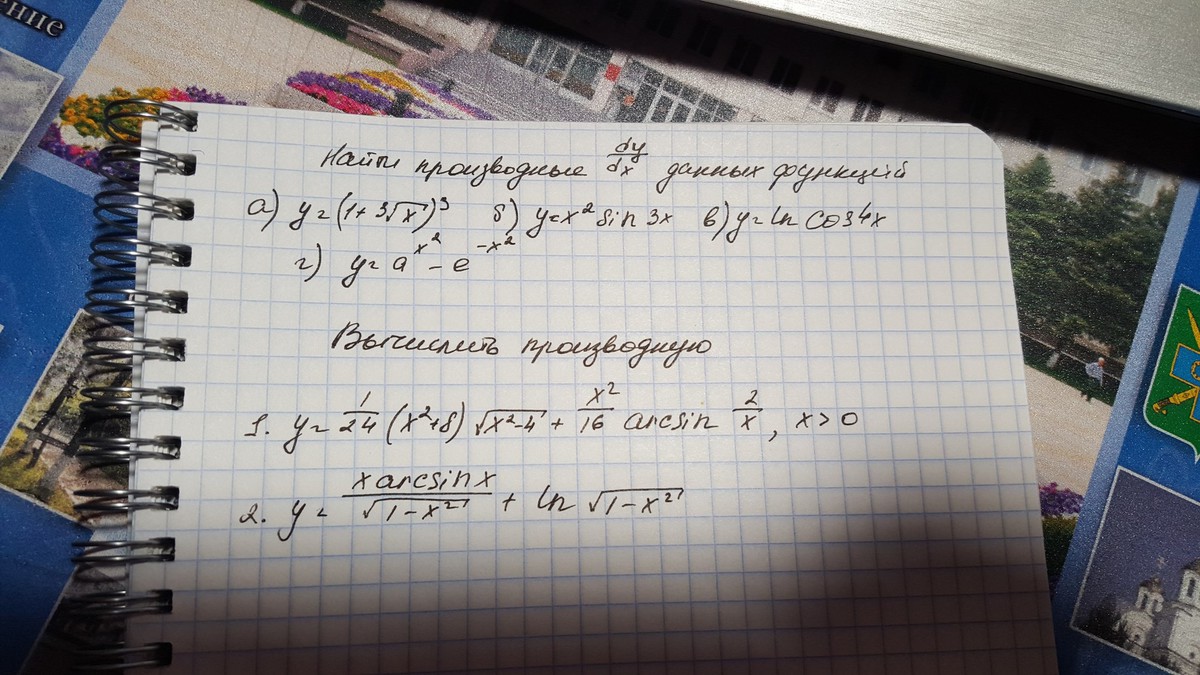 ение
Найти производные dy/dx данных функций
а) y=(1+3√x)³ б) y=x² sin 3x в) y=ln cos 4x
г) y=a^x² - e^-x²
Вычислить производную
1. y= 1/24 (x²+8) √x²-4 + x²/16 arcsin 2/x, x>0
2. y= x arcsin x/√1-x² + ln √1-x²